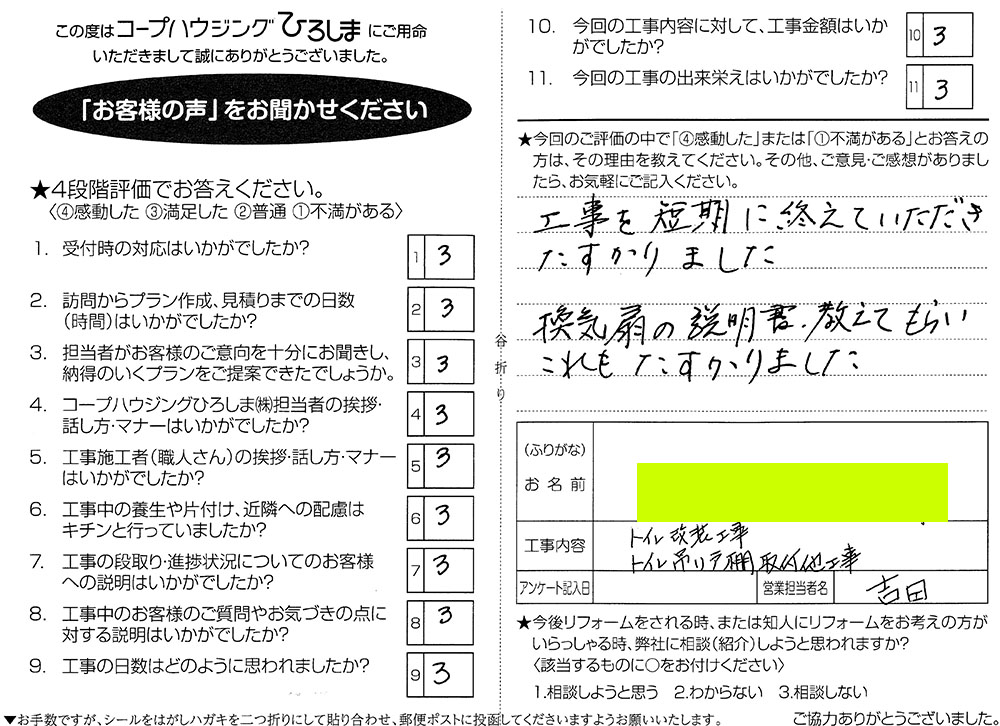 この度はコープハウジングひろしまにご用命
いただきまして誠にありがとうございました。
「お客様の声」をお聞かせください
★4段階評価でお答えください。
〈④感動した ③満足した ②普通 ①不満がある〉
1. 受付時の対応はいかがでしたか?
1 3
2. 訪問からプラン作成、見積りまでの日数
(時間)はいかがでしたか?
2 3
3. 担当者がお客様のご意向を十分にお聞きし、
納得のいくプランをご提案できたでしょうか。
3 3
4. コープハウジングひろしま㈱担当者の挨拶・
話し方・マナーはいかがでしたか?
4 3
5. 工事施工者(職人さん)の挨拶・話し方・マナー
はいかがでしたか?
5 3
6. 工事中の養生や片付け、近隣への配慮は
キチンと行っていましたか?
6 3
7. 工事の段取り・進捗状況についてのお客様
への説明はいかがでしたか?
7 3
8. 工事中のお客様のご質問やお気づきの点に
対する説明はいかがでしたか?
8 3
9. 工事の日数はどのように思われましたか?
9 3
▼お手数ですが、シールをはがしハガキを二つ折りにして貼り合わせ、郵便ポストに投函してくださいますようお願いいたします。
谷折り
10. 今回の工事内容に対して、工事金額はいか
がでしたか?
10 3
11. 今回の工事の出来栄えはいかがでしたか?
11 3
★今回のご評価の中で「④感動した」または「①不満がある」とお答えの
方は、その理由を教えてください。その他、ご意見・ご感想がありまし
たら、お気軽にご記入ください。
工事を短期に終えていただき
たすかりました
換気扇の説明書、教えてもらい
これもたすかりました
(ふりがな)
お名前
工事内容
トイレ改装工事
トイレ吊り戸棚取付他工事
アンケート記入日
営業担当者名
吉田
★今後リフォームをされる時、または知人にリフォームをお考えの方が
いらっしゃる時、弊社に相談(紹介)しようと思われますか?
〈該当するものに○をお付けください〉
1.相談しようと思う 2.わからない 3.相談しない
ご協力ありがとうございました。